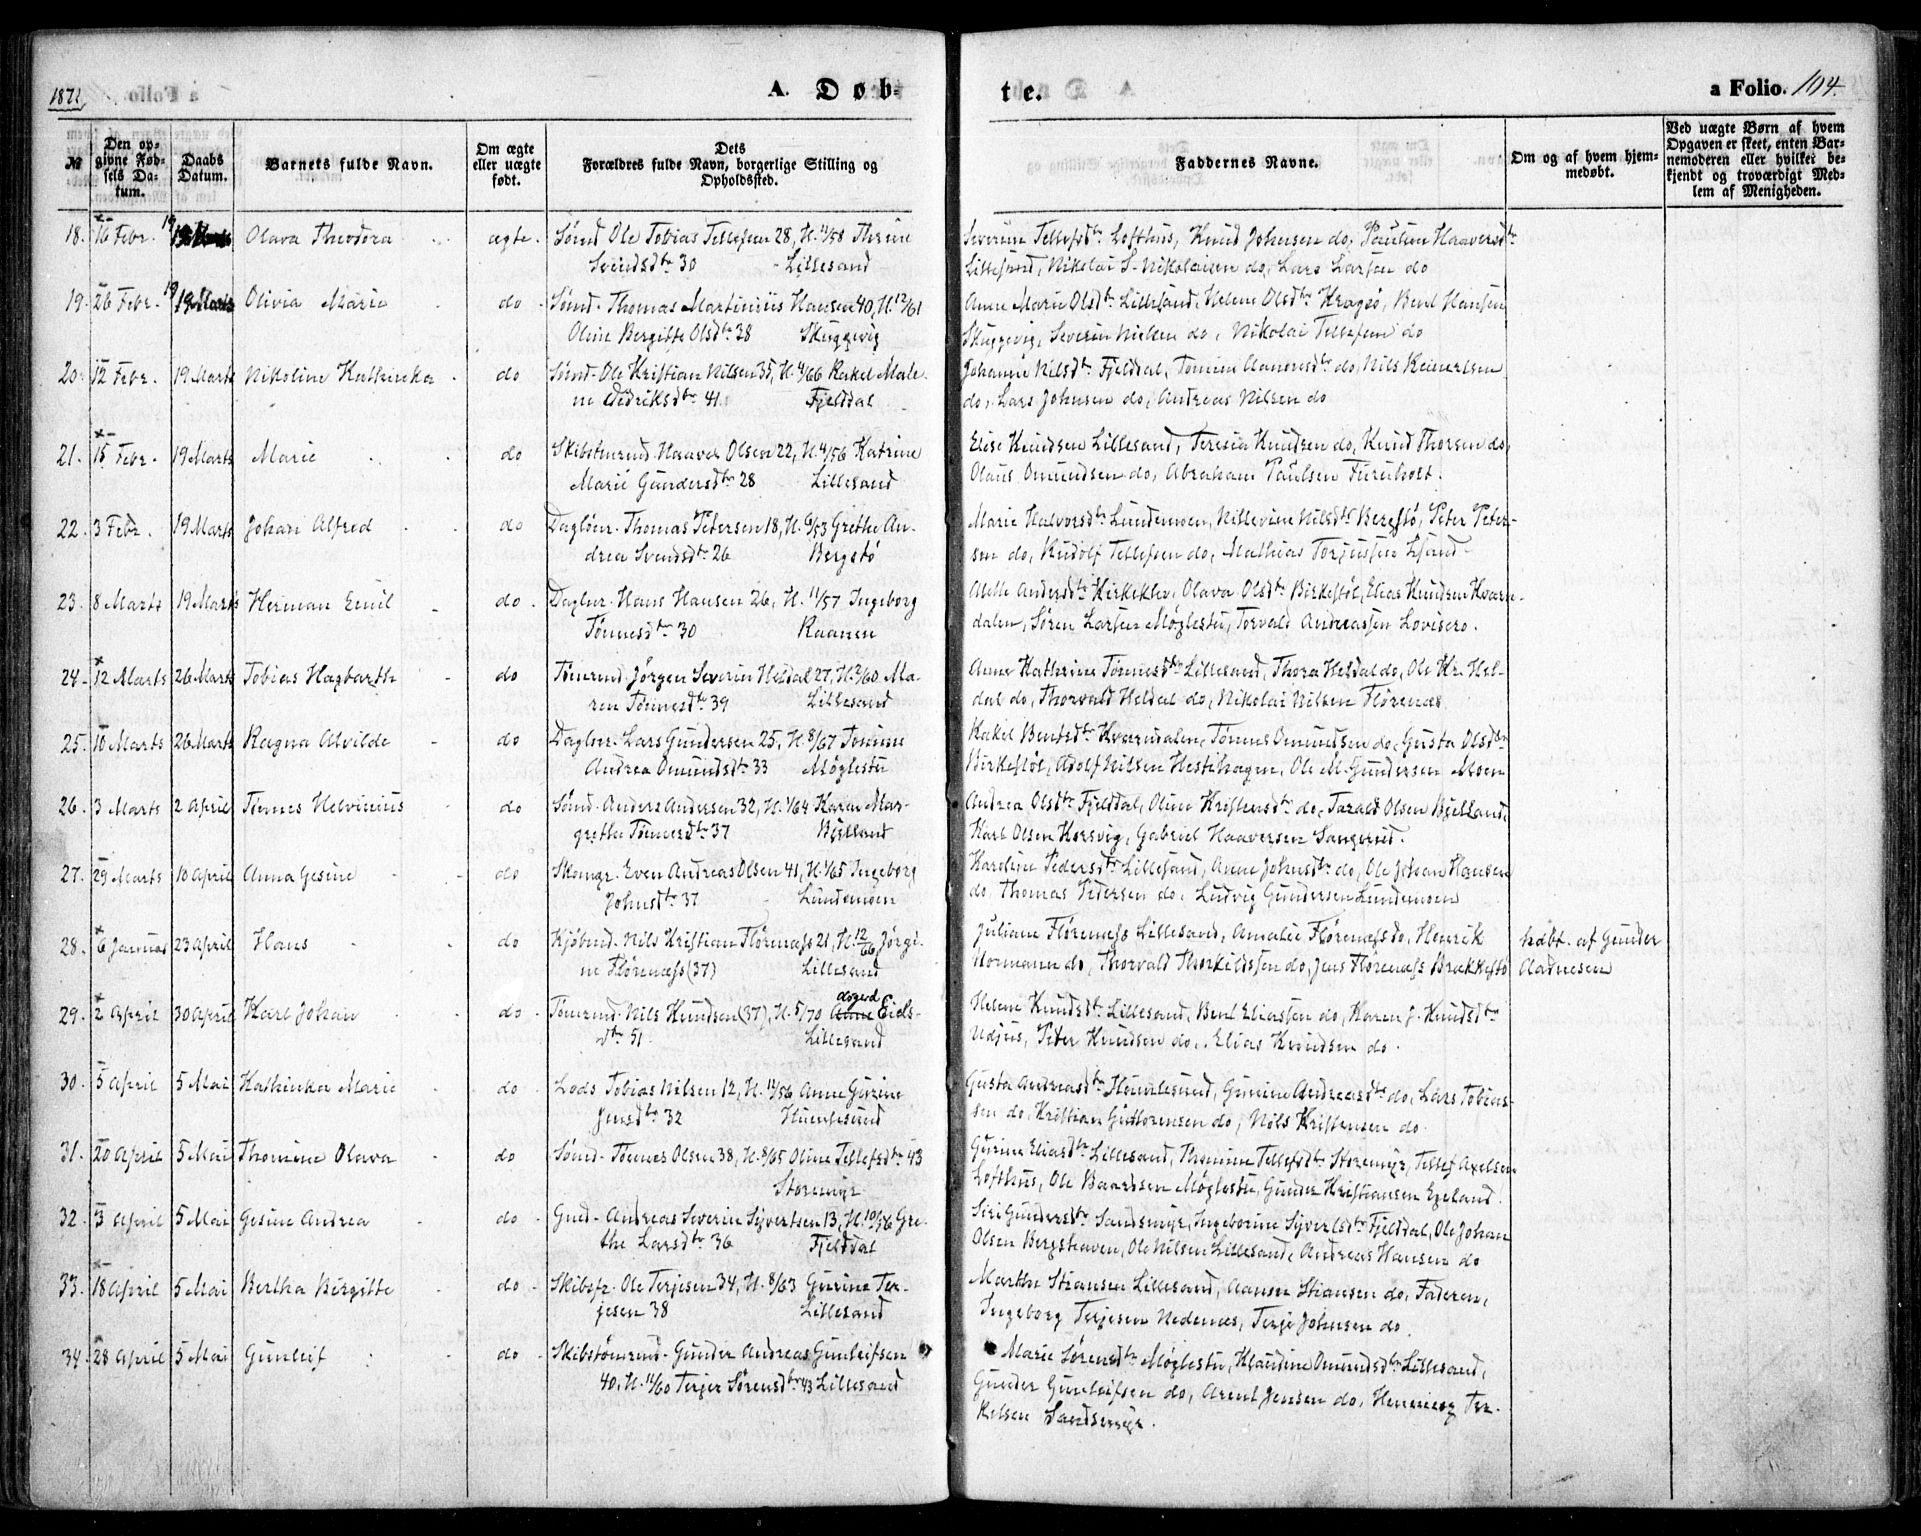 1872
A. Døb-
te.
a Folio. 104.
№
Den op-
givne Føð-
sels Da-
tum.
Daabs
Datum.
Barnets fulde Navn.
Om ægte
eller uægte
født.
Dets
Forældres fulde Navn, borgerlige Stilling og
Opholdssted.
Faddernes Navne.
Om og af hvem hjem-
medøbt.
Ved uægte Børn af hvem
Opgaven er skeet, enten Bar-
nemoderen eller hvilket be-
kjendt og troværdigt Med-
lem af Menigheden.
18. 16 Febr. 19 Marts Olava Theodora ægte Sømd Ole Tobias Tellefsen 28, H. 11/58 Thrine
Svendsdtr 30 Lillesand
Severine Tellefsdtr Lofthus, Knud Johnsen do, Paulien Haaversdtr
Lillesand, Nikolai S. Nikolaisen do, Lars Larsen do
19. 26 Febr. 19 Marts Olivia Marie do Sømd. Thomas Martinius Hansen 40, H. 12/61
Oline Bergitte Olsdtr 38 Skuggevig
Anne Marie Olsdtr Lillesand, Helene Olsdtr Kragsø, Bent Hansen
Skuggevig, Severin Nielsen do, Nikolai Tellefsen do
20. 12 Febr. 19 Marts Nikoline Kathinka do Sømd. Ole Kristian Nilsen 35, H. 4/66 Rakel Male-
ne Didriksdtr 41 Fjelddal
Johanne Nilsdtr Fjelddal, Tomine Aanonsdtr do, Nils Reinertsen
do, Lars Johnsen do, Andreas Nilsen do
21. 15 Febr. 19 Marts Marie do Skibstmrmd. Haaver Olsen 22, H. 4/56 Katrine
Marie Gundersdtr 28 Lillesand
Elise Knudsen Lillesand, Teresia Knudsen do, Knud Thorsen do,
Olaus Omundsen do, Abraham Paulsen Furuholt.
22. 3 Febr. 19 Marts Johan Alfred do Dagløn. Thomas Petersen 18, H. 6/53 Grethe An-
drea Svendsdtr 26 Bergstø
Marie Halvorsdtr Lundemoen, Nillevine Nilsdtr Bergstø, Peter Peter-
sen do, Rudolf Tellefsen do, Mathias Torjussen
23. 8 Marts 19 Marts Herman Emil do Daglnr. Hans Hansen 26, H. 11/57 Ingeborg
Tønnesdtr 30 Raanen
Alette Andersdtr Kirkeklev, Olava Olsdtr Birkestøl, Elias Knudsen Kvarn-
dalen, Søren Larsen Møglestu, Torvald Andreassen Lovisero.
24. 12 Marts 26 Marts Tobias Hagbarth do Tømrmd. Jørgen Severin Heldal 27, H. 2/60 Ma-
ren Tønnesdtr 39 Lillesand
Anne Kathrine Tønnesdtr Lillesand, Thora Heldal do, Ole Kr. Hel-
dal do, Thorvald Heldal do, Nikolai Nilsen Florenæs
25. 10 Marts 26 Marts Ragna Alvilde do Daglnr. Lars Gundersen 25, H. 8/67 Tomine
Andrea Omundsdtr 33 Møglestu
Rakel Bentsdtr Kvarndalen, Tønnes Omundsen do, Gusta Olsdtr
Birkestøl, Adolf Nilsen Hestehagen, Ole M. Gundersen Moen
26. 3 Marts 2 April Tønnes Helvinius do Sømd. Anders Andersen 32, H. 1/64 Karen Mar-
grethe Tønnesdtr 37 Bjelland
Andrea Olsdtr Fjelddal, Oline Kristensdtr do, Tarald Olsen Bjelland,
Karl Olsen Korsvig, Gabriel Haaversen Sangereid.
27. 29 Marts 10 April Anna Gesine do Skomgr. Even Andreas Olsen 41, H. 1/65 Ingeborg
Johnsdtr 37 Lundemoen
Karoline Pedersdtr Lillesand, Anne Johnsdtr do, Ole Johan Hansen
do, Thomas Pedersen do, Ludvig Gundersen Lundemoen
28. 6 Januar 23 April Hans do Kjøbmd. Nils Kristian Florenæss 21, H. 12/66 Jørgi-
ne Florenæss (37) Lillesand
Juliane Florenæss Lillesand, Amalie Florenæss do, Henrik
Normann do, Thorvald Thorkildssen do, Jens Florenæss Brækkestø
hdbt. af Gunder
Aadnesen
29. 2 April 30 April Karl Johan do Tømrmd. Nils Knudsen (37), H. 5/70 Anne Eiels-
dtr 51. Lillesand
Helene Knudsdtr Lillesand, Bent Eliassen do, Karen J. Knudsdtr
Udjus, Peter Knudsen do, Elias Knudsen do.
30. 5 April 5 Mai Kathinka Marie do Lods Tobias Nilsen 12, H. 11/56 Anne Gurine
Jensdtr 32 Humlesund
Gusta Andreasdtr Humlesund, Gunine Andreasdtr do, Lars Tobias-
sen do, Kristian Guttormsen do, Nils Kristensen do
31. 20 April 5 Mai Thomine Olava do Sømd. Tønnes Olsen 38, H. 8/65 Oline Tellefsdtr 43
Storemyr
Gurine Eliasdtr Lillesand, Thomine Tellefsdtr Storemyr, Tellef Axelsen
Lofthus, Ole Baardsen Møglestu, Gunder Kristiansen Egeland.
32. 3 April 5 Mai Gesine Andrea do Gmd. Andreas Severin Syvertsen 13, H. 10/56 Gre-
the Larsdtr 36 Fjelddal
Siri Gundersdtr Sandsmyr, Ingeborine Syvertsdtr Fjelddal, Ole Johan
Olsen Bergshaven, Ole Nilsen Lillesand, Andreas Hansen do
33. 18 April 5 Mai Bertha Birgitte do Skibsfr. Ole Terjesen 34, H. 8/63 Gurine Ter-
jesen 38 Lillesand
Marthe Stiansen Lillesand, Aanon Stiansen do, Faderen,
Ingeborg Terjesen Nedenes, Terje Johnsen do.
34. 28 April 5 Mai Gunleif do Skibstømrmd. Gunder Andreas Gunleifsen
40, H. 11/60 Terjer Sørensdtr 43 Lillesand
Marie Sørensdtr Møglestu, Klaudine Omundsdtr Lillesand,
Gunder Gunleifsen do, Arent Jensen do, Henning Ter-
kelsen Sandsmyr.